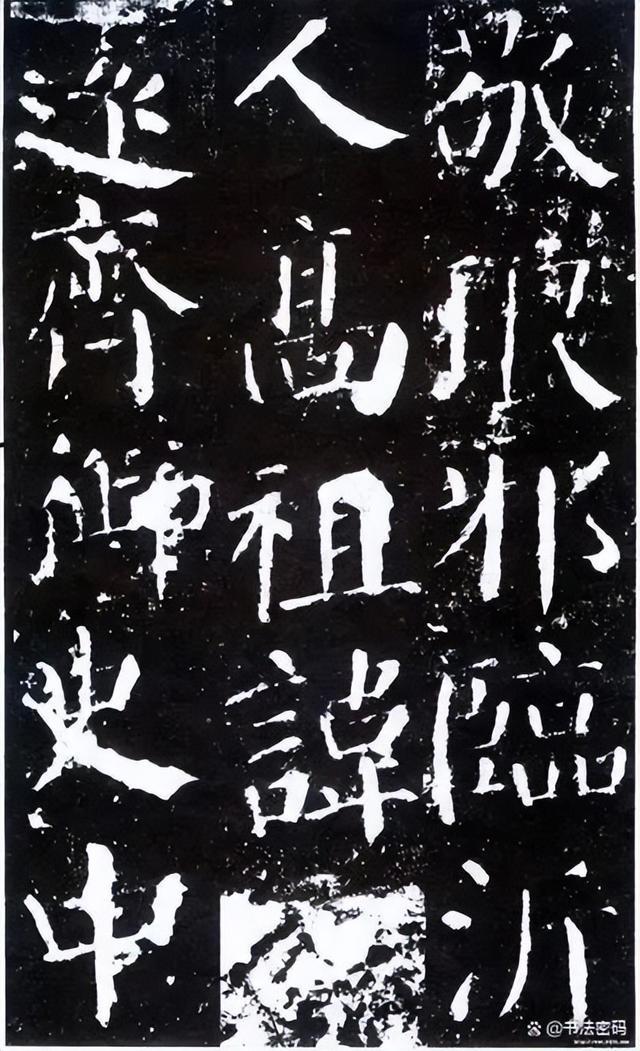 敬琅邪臨沂
人高祖諱
遠齊御史中
@书法密码